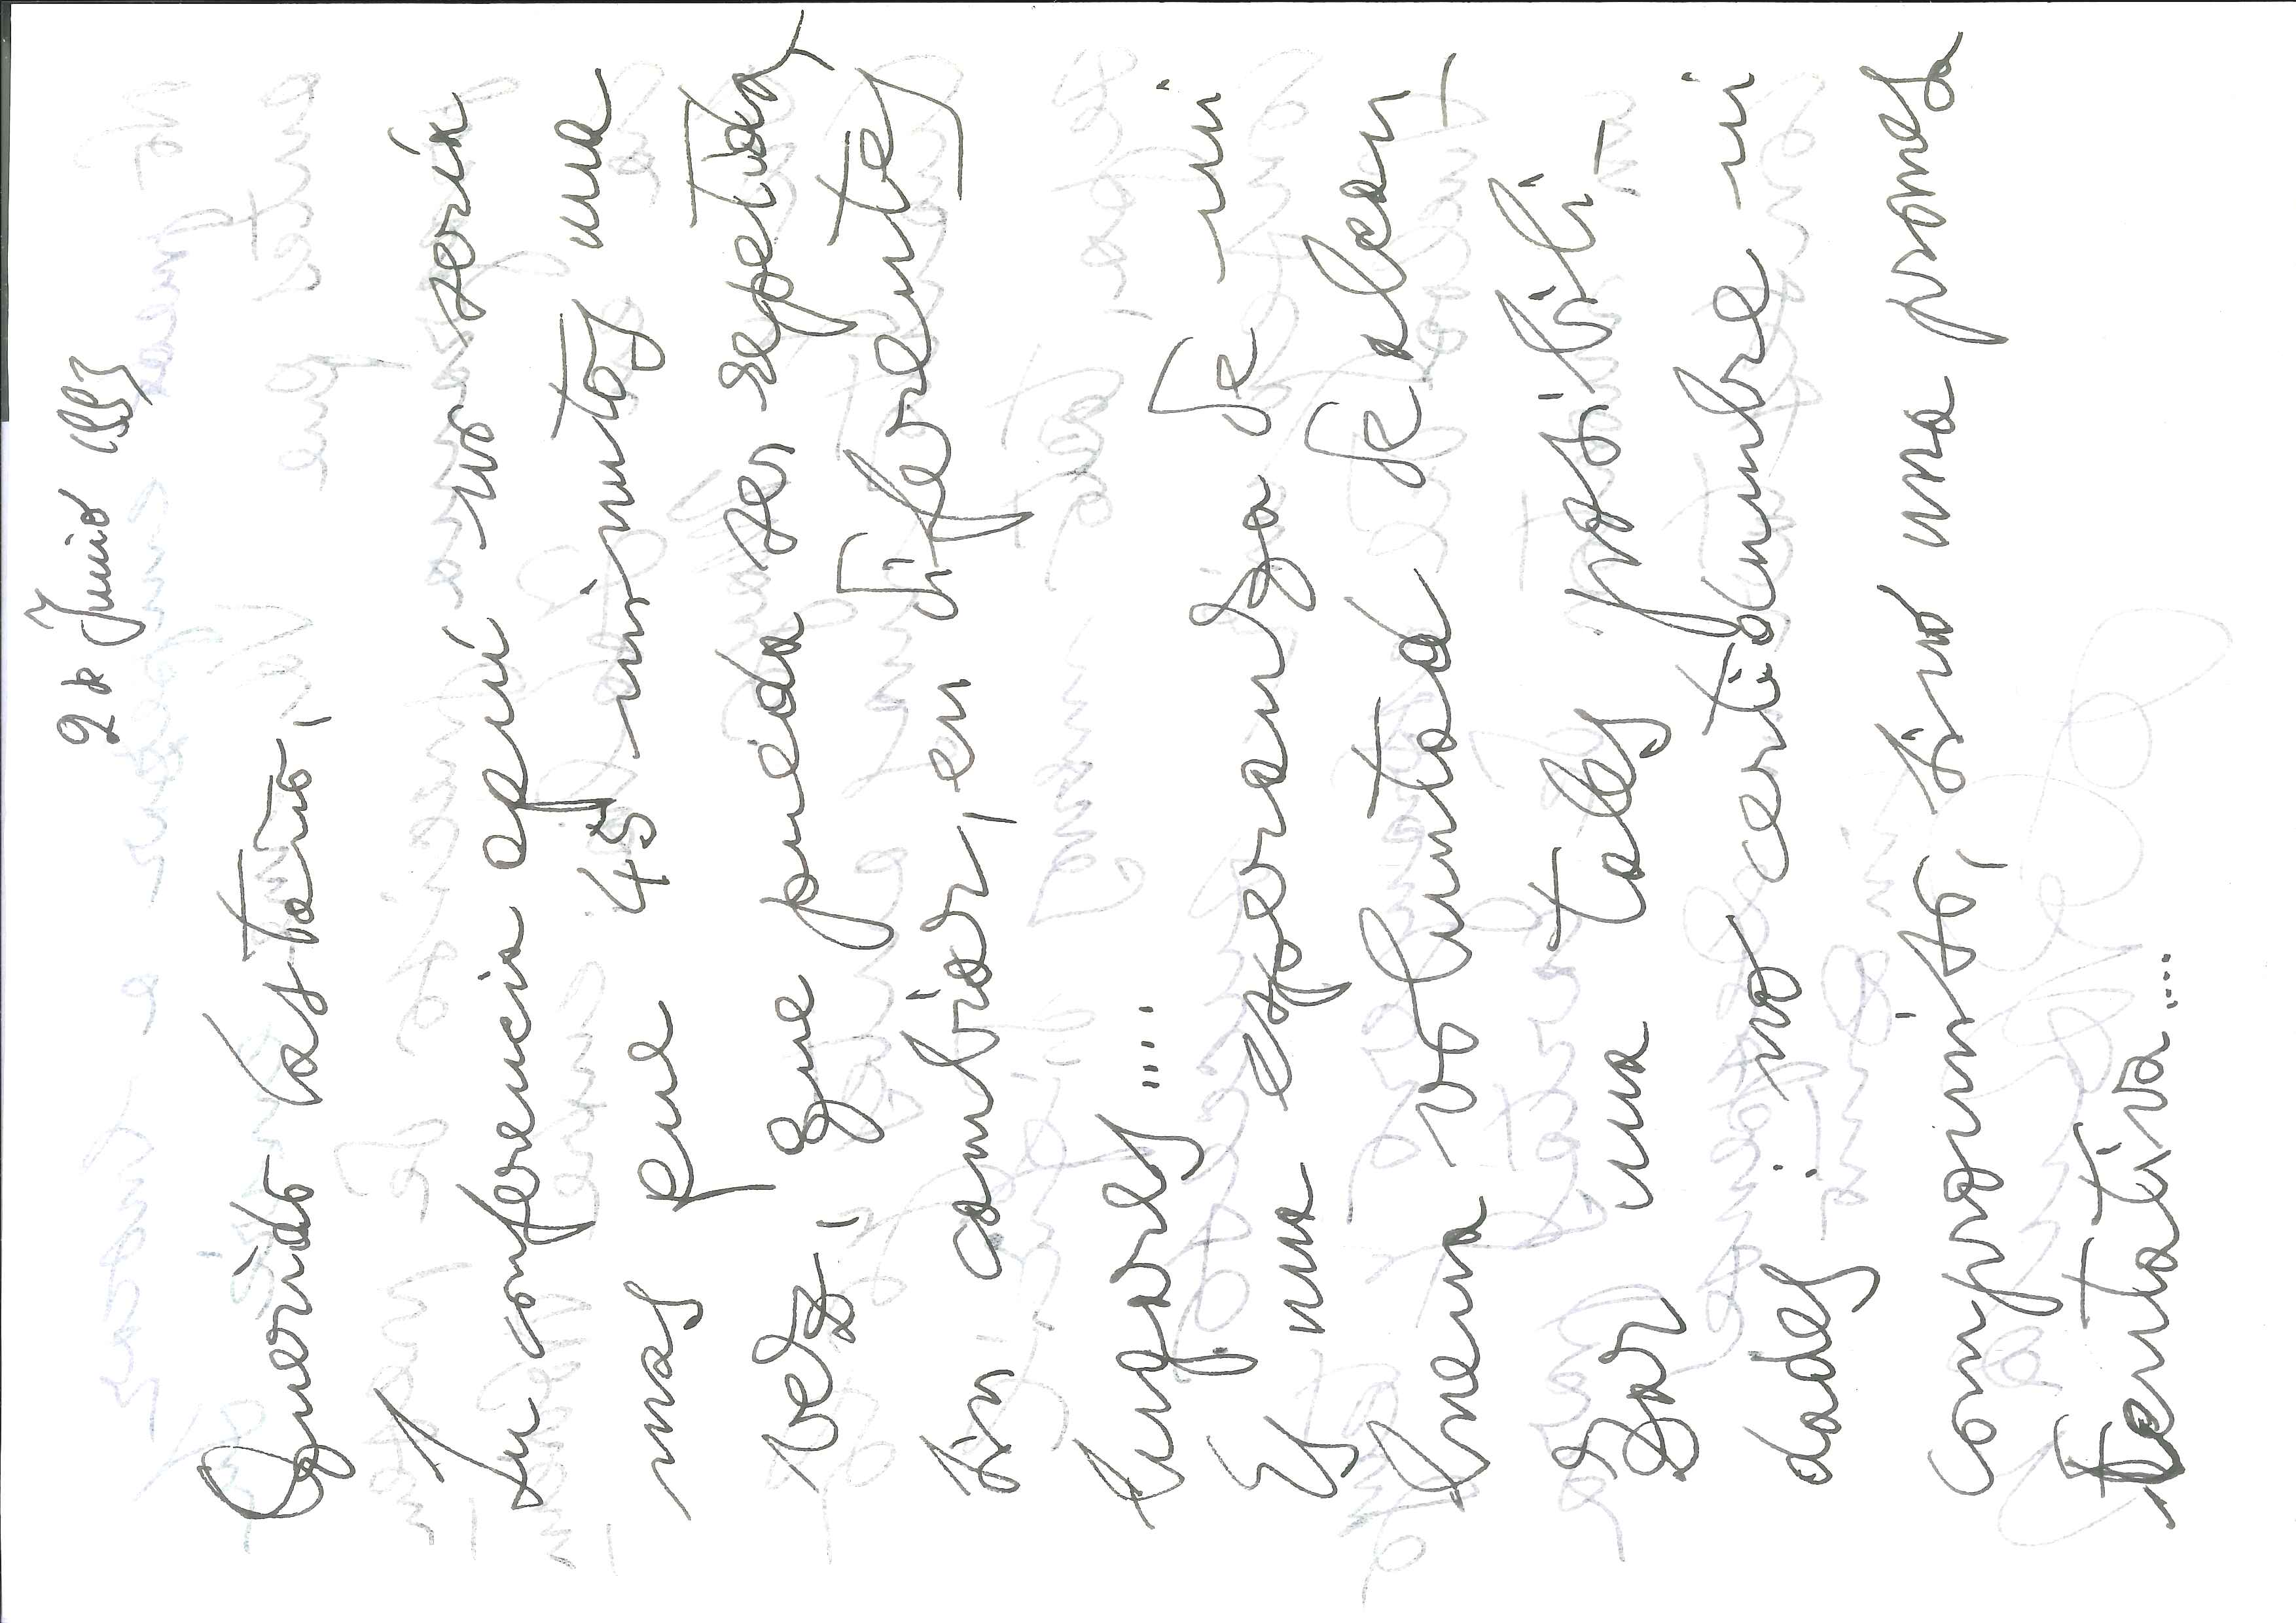 2 de Junio 1993
Querido Castaño,
Su conferencia aquí no sería
mas que 45 minutos una
vez, que pueda ser repetida,
sin cambiar, en diferentes
lugares....
Es una esperanza de mi
buena voluntad de alcan-
zar una tales posibili-
dades : no certidumbre ni
compromiso, sinó una promesa
tentativa....